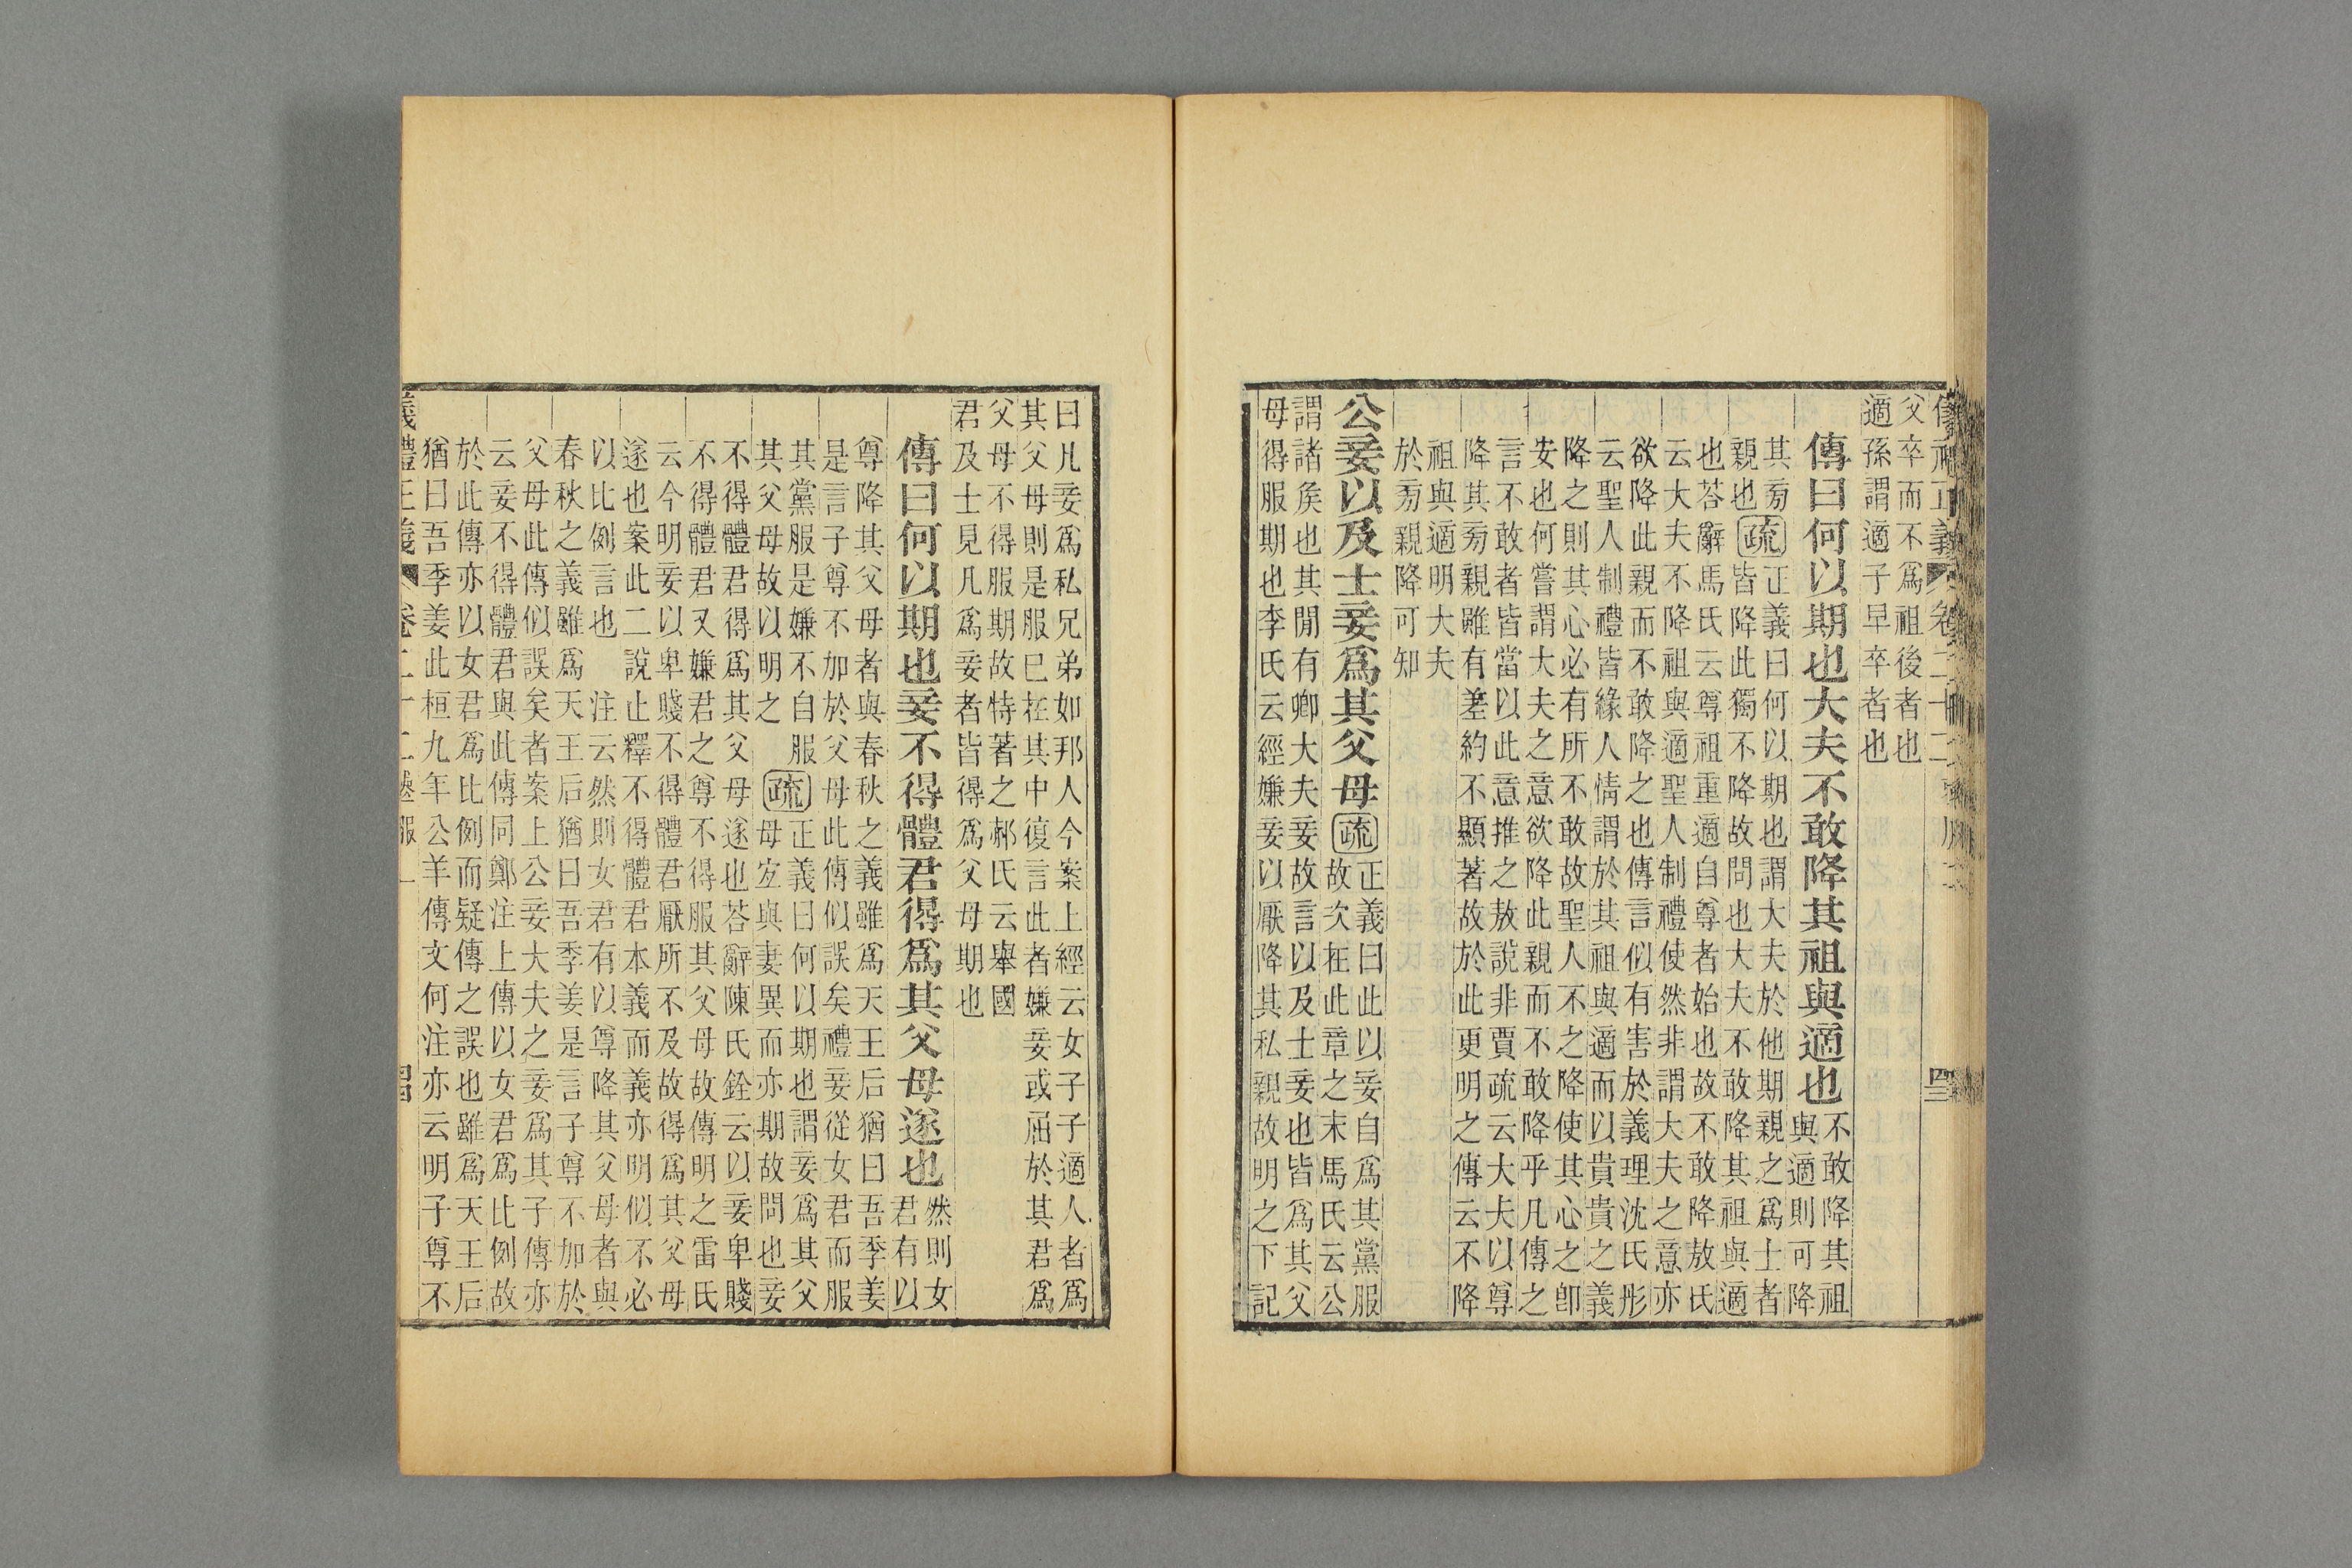 父卒而不爲祖後者也
適孫謂適子早卒者也
傳曰何以期也大夫不敢降其祖與適也
不敢降其祖
與適則可降
其旁
親也
疏
正義曰何以期也謂大夫於他期親之爲士者
皆降此獨不降故問也大夫不敢降其祖與適
也荅辭馬氏云尊祖重適自尊者始也故不敢降敖氏
云大夫不降祖與適聖人制禮使然非謂大夫之意亦
欲降此親而不敢降之也傳言似有害於義理沈氏彤
云聖人制禮皆緣人情謂於其祖與適而以貴貴之義
降之則其心必有所不敢故聖人不之降使其心之卽
安也何嘗謂大夫之意欲降此親而不敢降乎凡傳之
言不敢者皆當以此意推之敖說非賈疏云大夫以尊
降其旁親雖有差約不顯著故於此更明之傳云不降
祖與適明大夫
於旁親降可知
公妾以及士妾爲其父母
疏
正義曰此以妾自爲其黨服
故次在此章之末馬氏云公
謂諸矦也其閒有卿大夫妾故言以及士妾也皆爲其父
母得服期也李氏云經嫌妾以厭降其私親故明之下記
曰凡妾爲私兄弟如邦人今案上經云女子子適人者爲
其父母則是服已在其中復言此者嫌妾或屈於其君爲
父母不得服期故特著之郝氏云舉國
君及士見凡爲妾者皆得爲父母期也
傳曰何以期也妾不得體君得爲其父母遂也
然則女
君有以
尊降其父母者與春秋之義雖爲天王后猶曰吾季姜
是言子尊不加於父母此傳似誤矣禮妾從女君而服
其黨服是嫌不自服
其父母故以明之
疏
正義曰何以期也謂妾爲其父
母宜與妻異而亦期故問也妾
不得體君得爲其父母遂也荅辭陳氏銓云以妾卑賤
不得體君又嫌君之尊不得服其父母故傳明之雷氏
云今明妾以卑賤不得體君厭所不及故得爲其父母
遂也案此二說止釋不得體君本義而義亦明似不必
以比例言也 注云然則女君有以尊降其父母者與
春秋之義雖爲天王后猶曰吾季姜是言子尊不加於
父母此傳似誤矣者案上公妾大夫之妾爲其子傳亦
云妾不得體君與此傳同鄭注上傳以女君爲比例故
於此傳亦以女君爲比例而疑傳之誤也雖爲天王后
猶曰吾季姜此桓九年公羊傳文何注亦云明子尊不